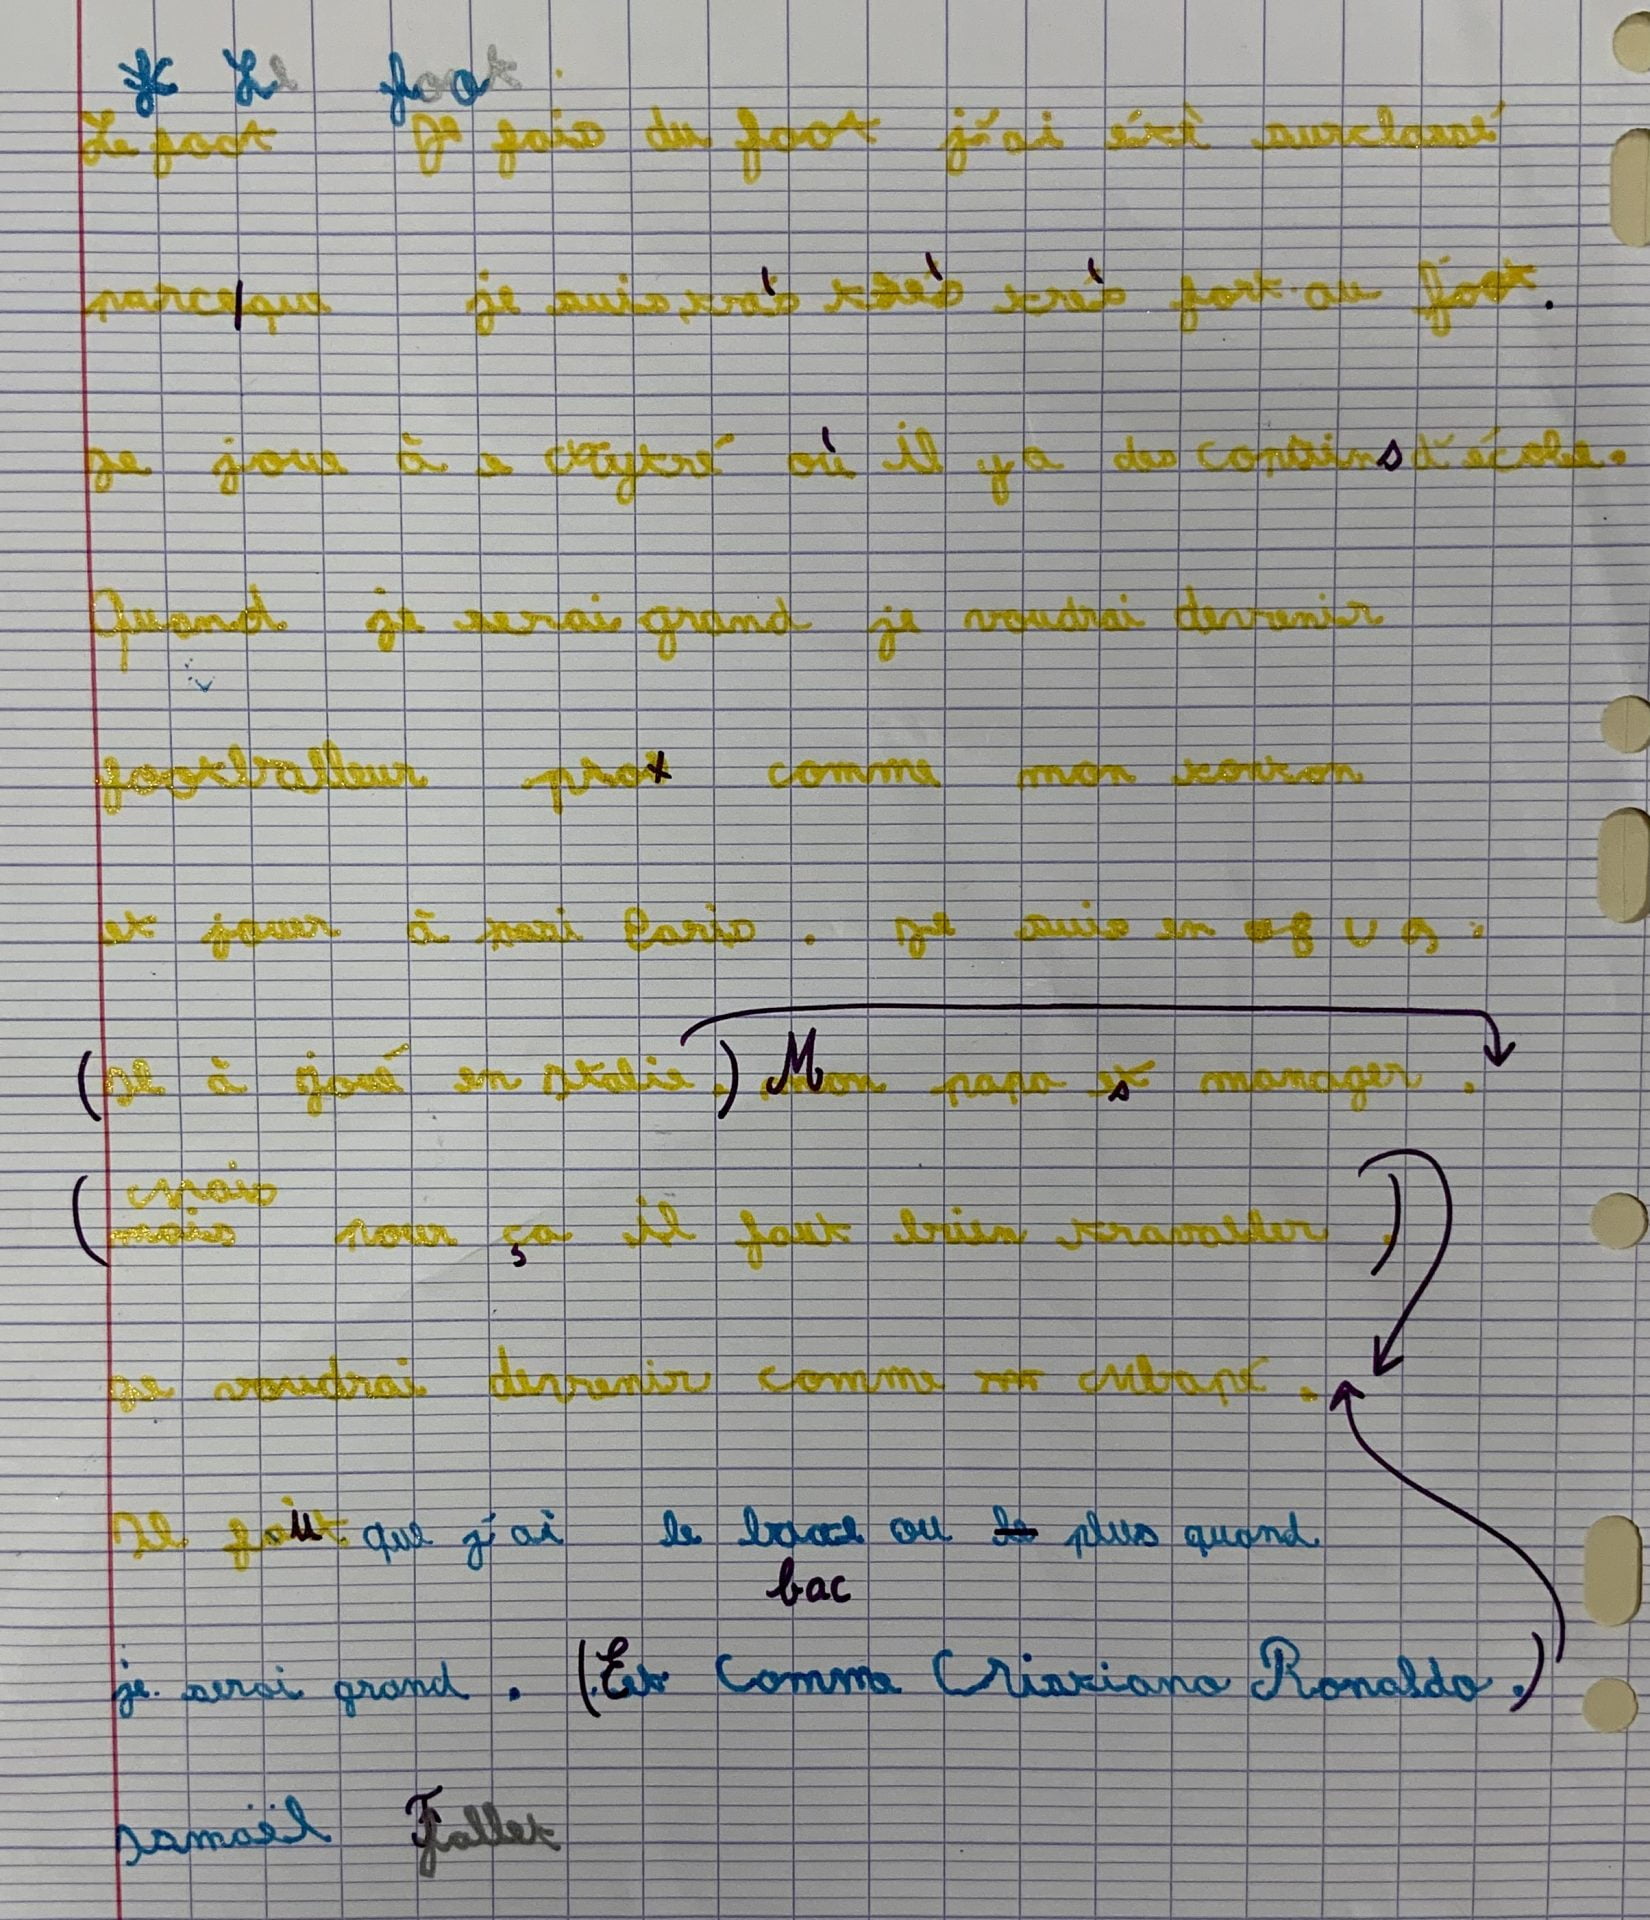 Le foot
Le foot Je fais du foot j'ai été surclassé
parceque je suis, très très très fort au foot.
Je joue à Aytré où il y a des copains d'école.
Quand je serai grand je voudrai devenir
footballeur pro comme mon tonton
et jouer à Paris. Je suis en 8 U 9.
(Il à joué en Italie.) Mon papa est manager.
(Mais
mais pour ça il faut bien travaller.)
Je voudrai devenir comme Mbapé.
Il faut que j'ai le bace ou plus quand
bac
je serai grand. (Et Comme Cristiano Ronaldo.)
Ismaël Fallet